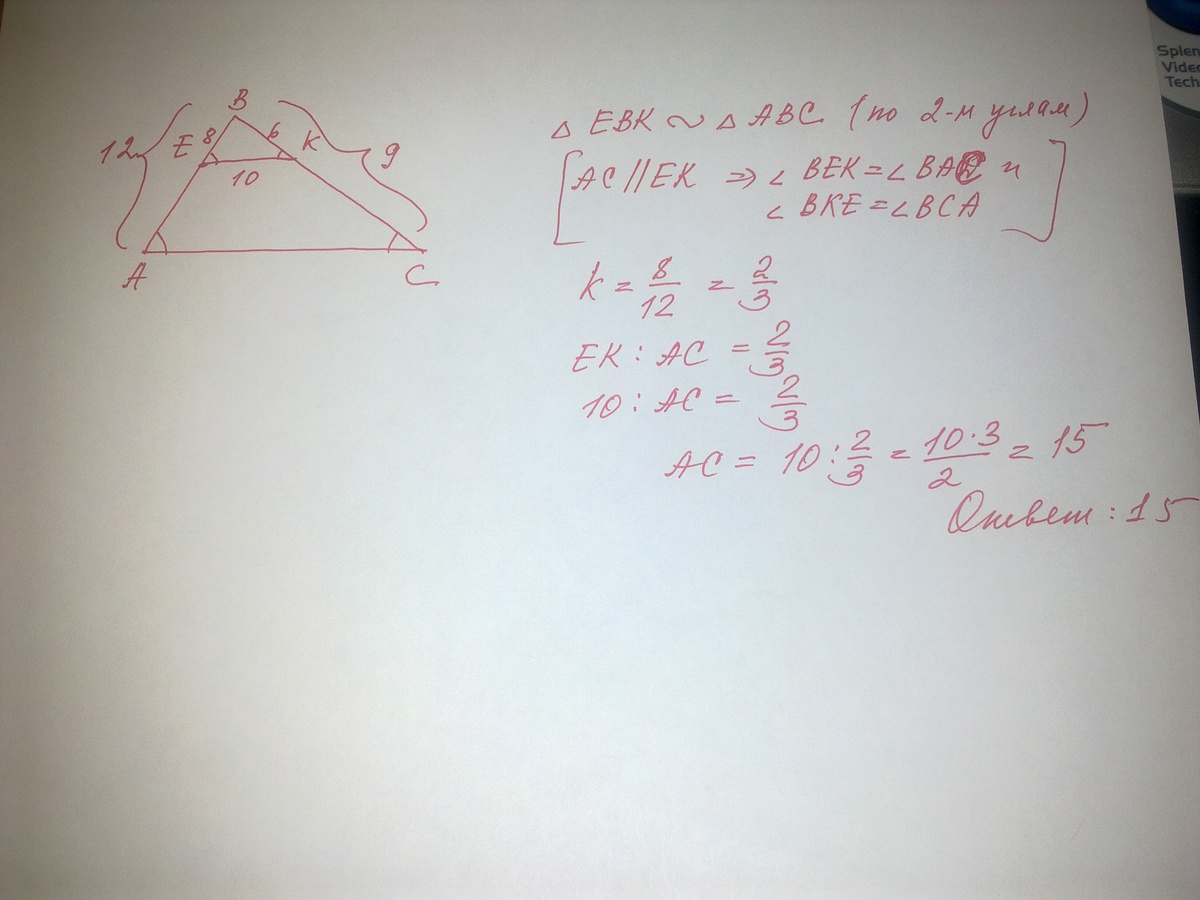 B
12
E 8 6 K 9
10
A C
△ EBK ~ △ ABC (по 2-м углам)
[AC // EK ⇒ ∠ BEK = ∠ BAC и
∠ BKE = ∠ BCA]
k = 8/12 = 2/3
EK : AC = 2/3
10 : AC = 2/3
AC = 10 : 2/3 = 10·3/2 = 15
Ответ : 15
Splen
Video
Tech